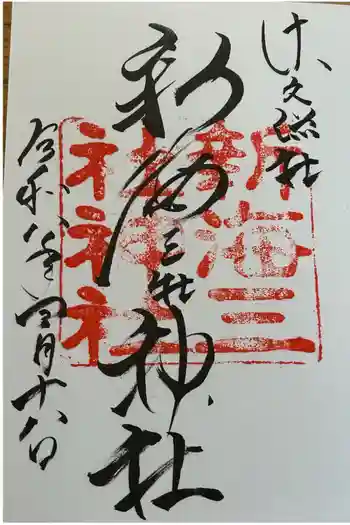 佐久総社
新海三社神社
令和八年四月十八日
新海三
社神社